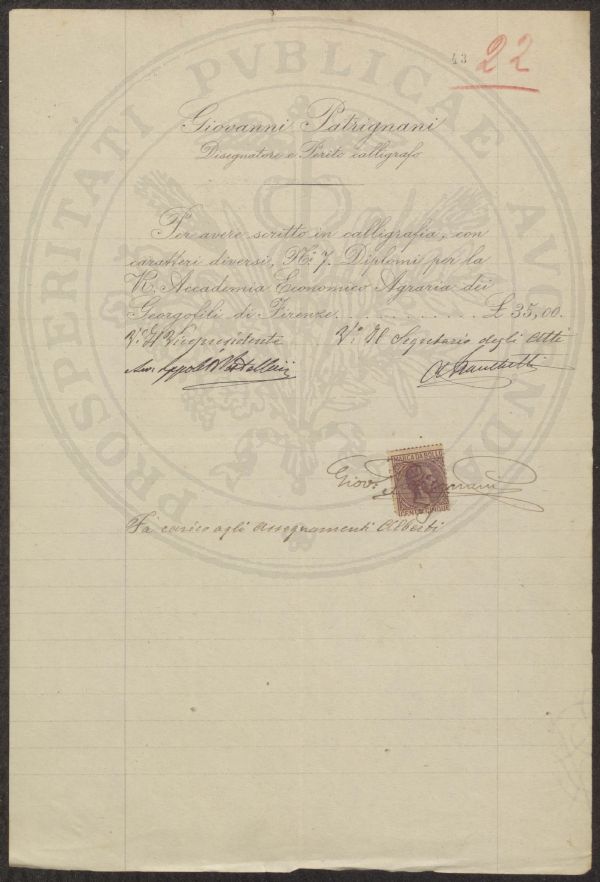 43 22
PROSPERITATI PVBLICAE
Giovanni Patrignani
Disegnatore e Perito calligrafo
Per avere scritto in calligrafia, con
caratteri diversi, N.i 7. Diplomi per la
R. Accademia Economico Agraria dei
Georgofili di Firenze . . . . . . . . . . . £ 35,00.
V.o Il Vicepresidente V.o Il Segretario degli Atti
MARCA DA BOLLO
Giov. Patrignani
CENT. CINQUE
Fa carico agli Assegnamenti Alberti